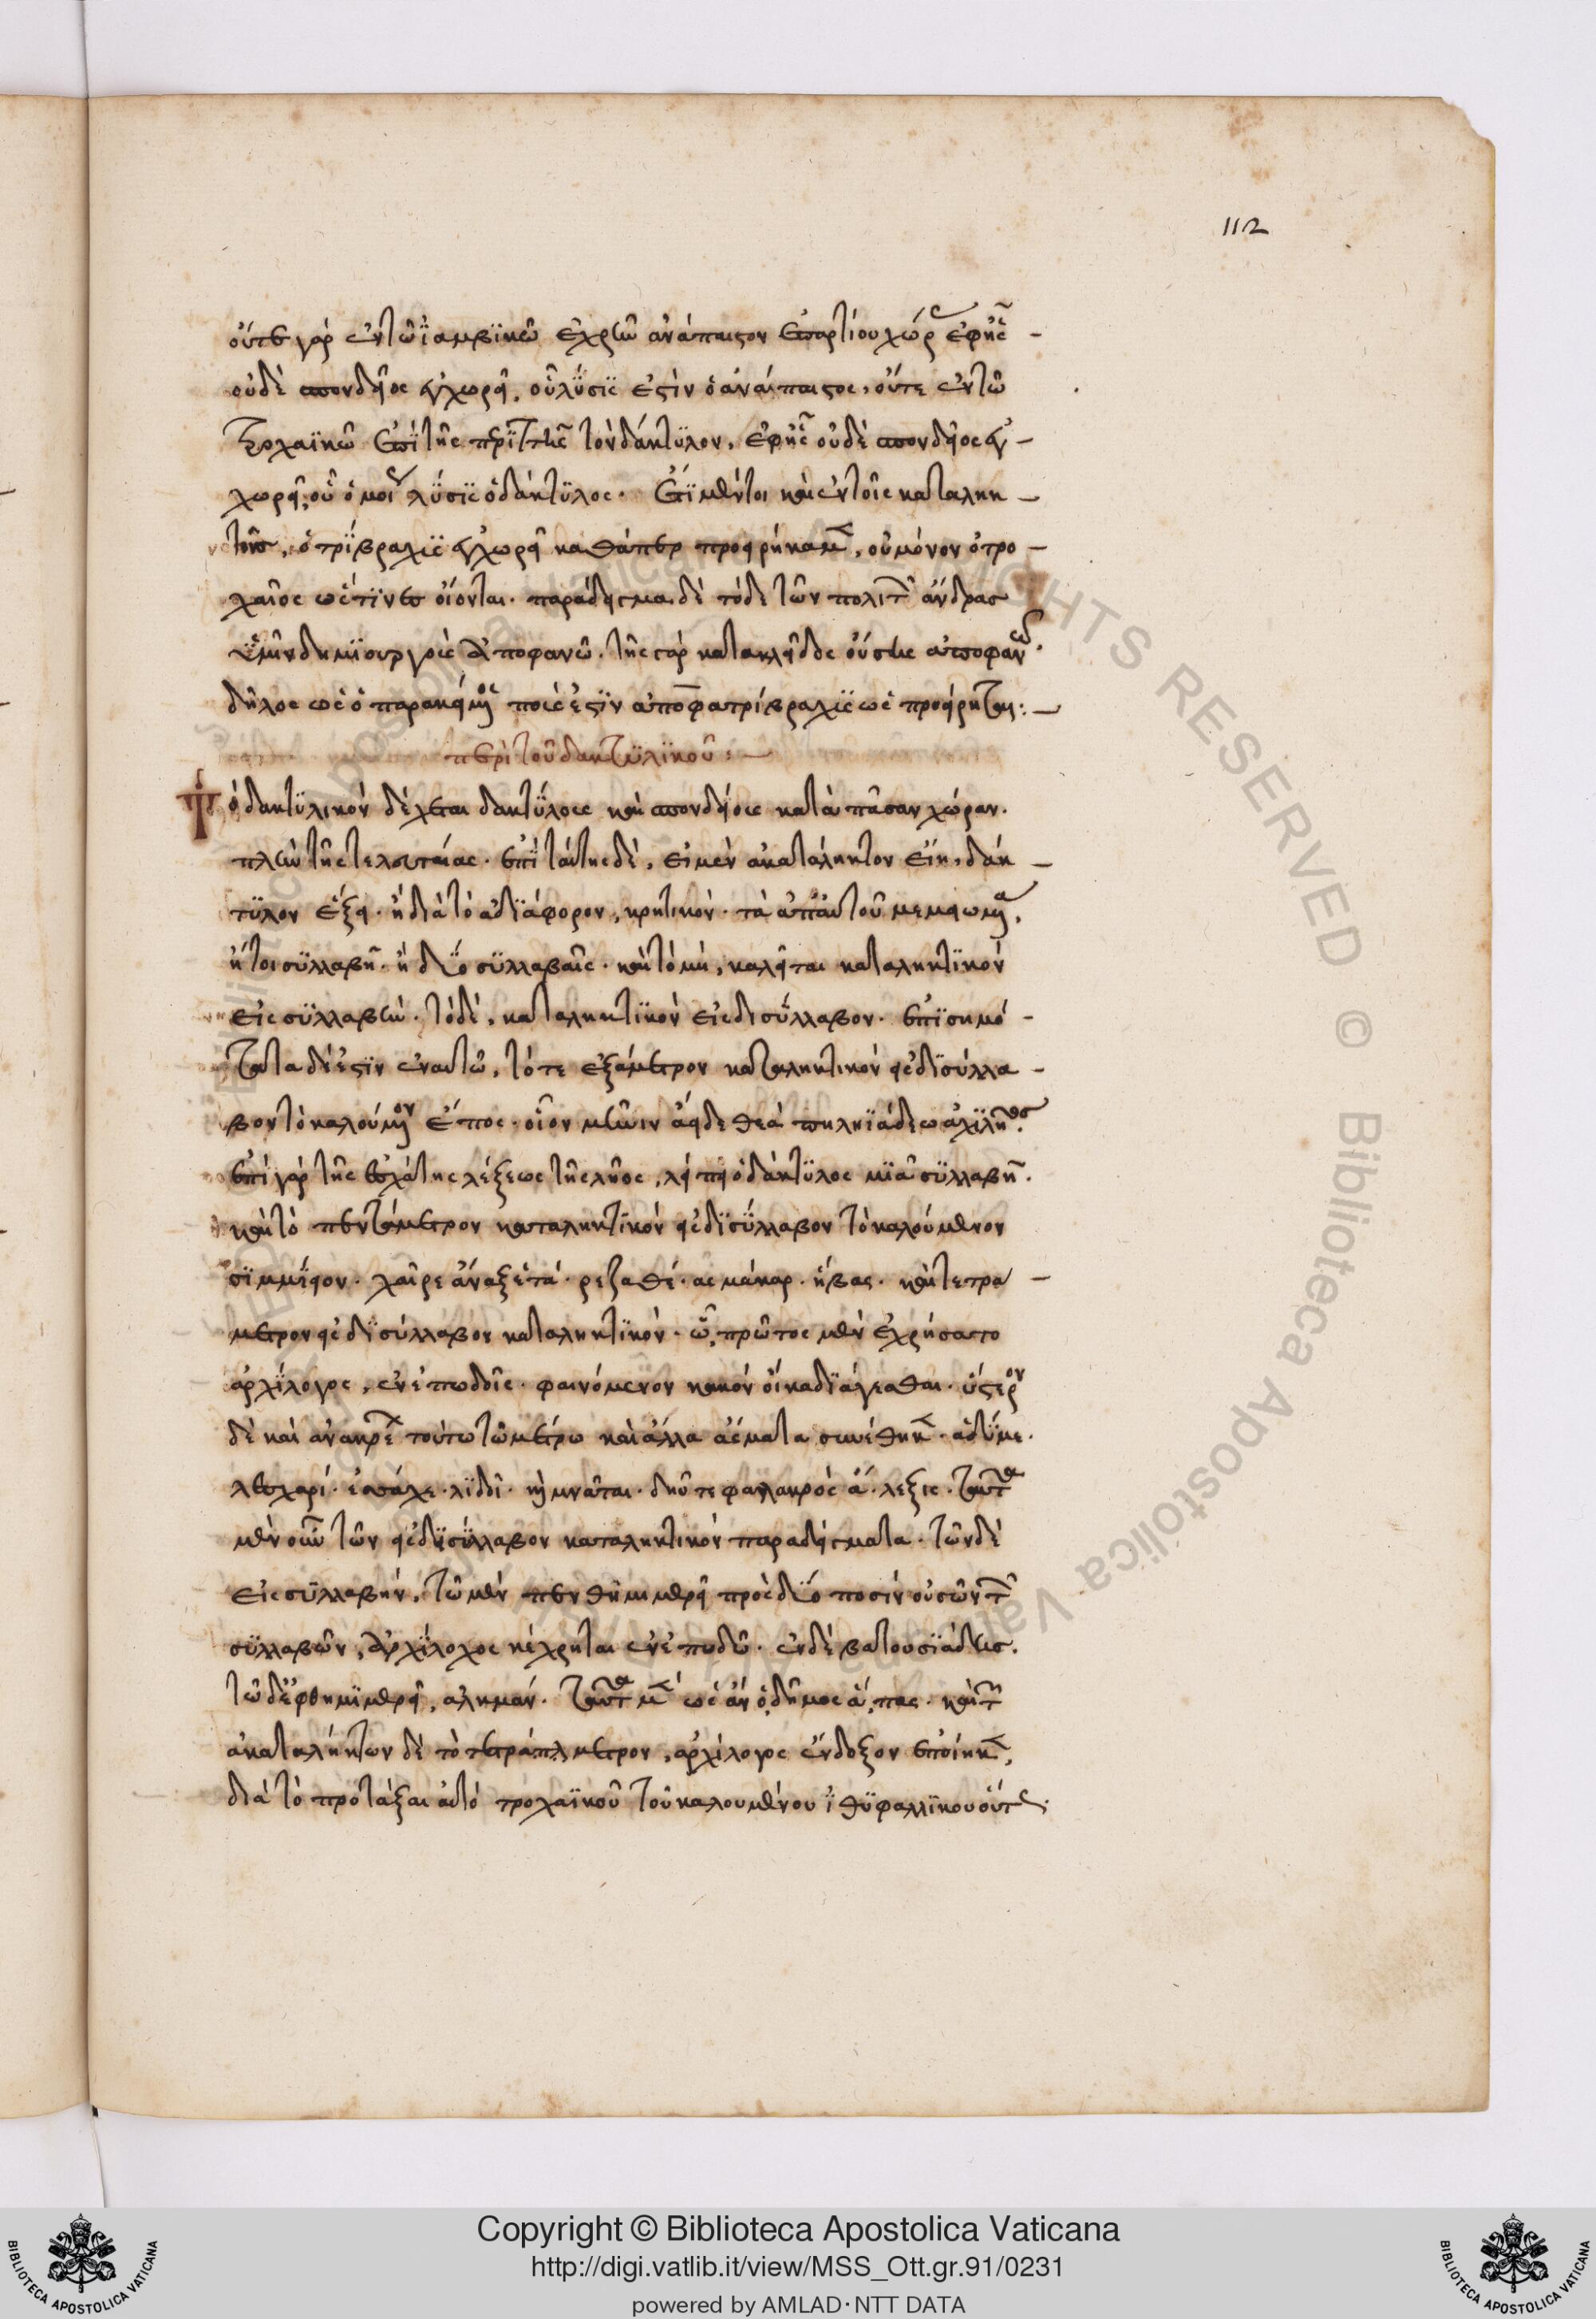 112
οὔτε γὰρ ἐν τῶ ἰαμβικῶ ἐχρῆν ἀνάπαιστον ἐπ ἀρτίου χώρας ἐφ ἧς
οὐδὲ σπονδεῖος ἐγχωρεῖ, οὗ λύσις ἐστὶν ὁ ἀνάπαιστος, οὔτε ἐν τῶ
τροχαϊκῶ ἐπὶ τῆς περιττῆς τὸν δάκτυλον, ἐφ ἧς οὐδὲ σπονδεῖος ἐγ
χωρεῖ, οὗ ὁμοίως λύσις ὁ δάκτυλος. ἔτι μέντοι καὶ ἐν τοῖς καταλη
κτικοῖς, ὁ τρίβραχις ἐγχωρεῖ καθάπερ προειρήκαμεν, οὐ μόνον ὁ τρο
χαῖος ὥς τινες οἴονται. παράδειγμα δὲ τόδε τῶν πολιτῶν ἄνδρας
ὑμῖν δημιουργοὺς ἀποφανῶ. τῆς γὰρ κατακλεῖδος οὔσης ἀποφανῶ
δῆλος ὡς ὁ παρακείμενος ποὺς ἐστιν ἀποφα τρίβραχις ὡς προείρηται:
περὶ τοῦ δακτυλικοῦ:
Τὸ δακτυλικὸν δέχεται δακτύλους καὶ σπονδείους κατὰ πᾶσαν χώραν.
πλὴν τῆς τελευταίας. ἐπὶ ταύτης δὲ, εἰ μὲν ἀκατάληκτον εἴη, δάκ
τυλον ἕξει. ἢ διὰ τὸ ἀδιάφορον, κρητικόν. τὰ ἀπ αὐτοῦ μεμειωμένα,
ἤτοι συλλαβῆ. ἢ δύο συλλαβαῖς. καὶ τὸ μὲν, καλεῖται καταληκτικὸν
εἰς συλλαβὴν. τὸ δὲ, καταληκτικὸν εἰς δισύλλαβον. ἐπισημό
τατα δέ ἐστιν ἐν αὐτῶ, τό τε ἑξάμετρον καταληκτικὸν εἰς δισύλλα
βον τὸ καλούμενον ἔπος. οἷον μῆνιν ἄειδε θεά πηληϊάδεω ἀχιλῆος.
ἐπὶ γὰρ τῆς ἐσχάτης λέξεως τῆς λῆος, λείπει ὁ δάκτυλος μιᾶ συλλαβῆ.
καὶ τὸ πεντάμετρον καταληκτικὸν εἰς δισύλλαβον τὸ καλούμενον
σιμμίειον. χαῖρε ἄναξ ἑτά. ρε ζαθέ. ας μάκαρ. ἥβας. καὶ τετρα
μετρον εἰς δισύλλαβον καταληκτικὸν. ὧ, πρῶτος μὲν ἐχρήσατο
ἀρχίλογος, ἐν ἐπωδοῖς. φαινόμενον κακόν οἴκαδ ἄγεσθαι. ὕστερον
δὲ καὶ ἀνακρέων τούτω τῶ μέτρω καὶ ἄλλα ἄσματα συνέθηκεν. ἁδυμε
λες χαρί. εσσά χε. λιδοῖ. κὴ μνᾶται. δηῦτε φαλακρὸς ἄ. λεξις. ταῦτα
μὲν οὖν τῶν εἰς δισύλλαβον καταληκτικὸν παραδείγματα. τῶν δὲ
εἰς συλλαβήν, τῶ μὲν πενθημιμερεῖ πρὸς δύο ποσίν οὐσῶν τῶν
συλλαβῶν, ἀρχίλοχος κέχρηται ἐν ἐπωδῶ. ἐν δὲ βατουσιάδης.
τῶ δ ἐφθημιμερεῖ, ἀλκμάν. ταῦτα μὲν ὡς ἂν ὁ, δῆμος ἅ, πας. καὶ τῶν
ἀκαταλήκτων δὲ τὸ τετράμετρον, ἀρχίλογος ἔνδοξον ἐποίησεν,
διὰ τὸ προτάξαι αὐτό τροχαϊκοῦ τοῦ καλουμένου ἰθυφαλλικοῦ οὕτως
Copyright © Biblioteca Apostolica Vaticana
http://digi.vatlib.it/view/MSS_Ott.gr.91/0231
powered by AMLAD·NTT DATA